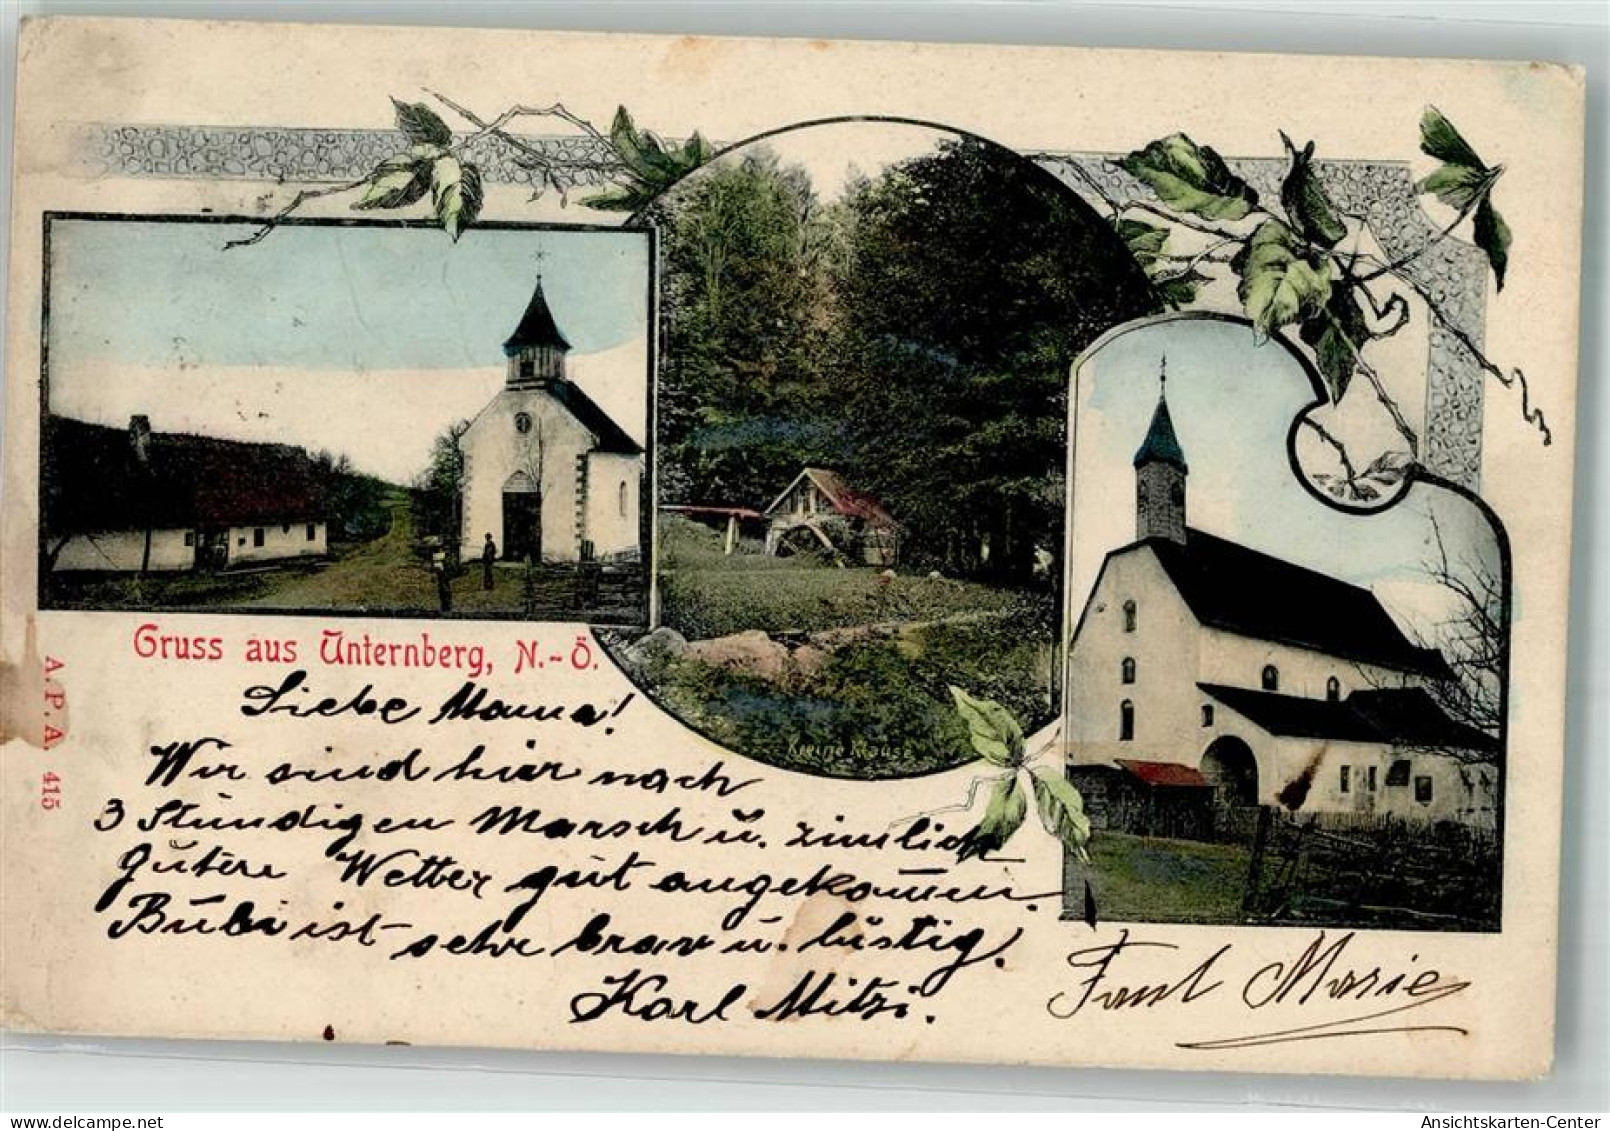 Gruss aus Unternberg, N.-Ö.
Kleine Klause
A. P. A. 415
Liebe Mama!
Wir sind hier nach
3 stündigen Marsch u. zimlich
gutere Wetter gut angekommen.
Bubi ist sehr brav u. lustig.
Karl Mitzi.
Marie
delcampe.net
Ansichtskarten-Center